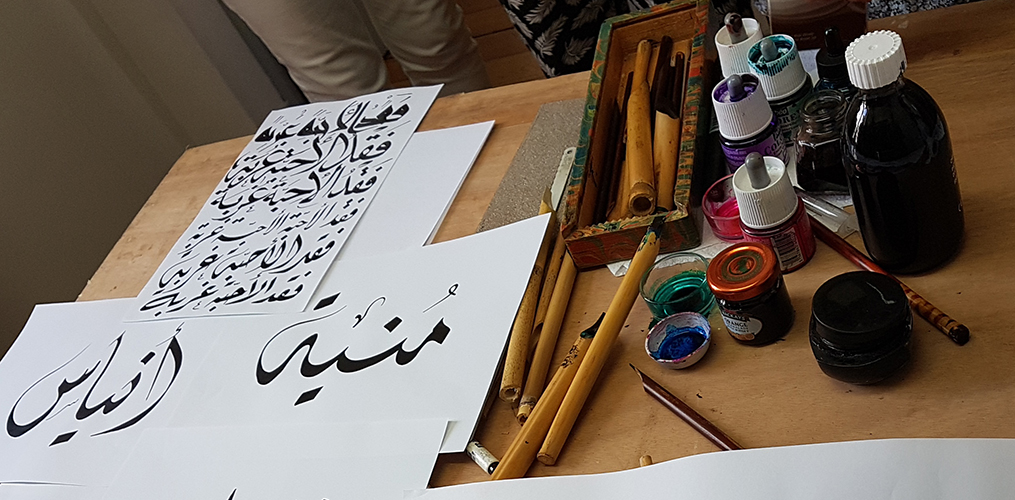 فقد الأحبة غربة
فقد الأحبة غربة
فقد الأحبة غربة
فقد الأحبة غربة
فقد الأحبة غربة
فقد الأحبة غربة
مُنية
أنياس